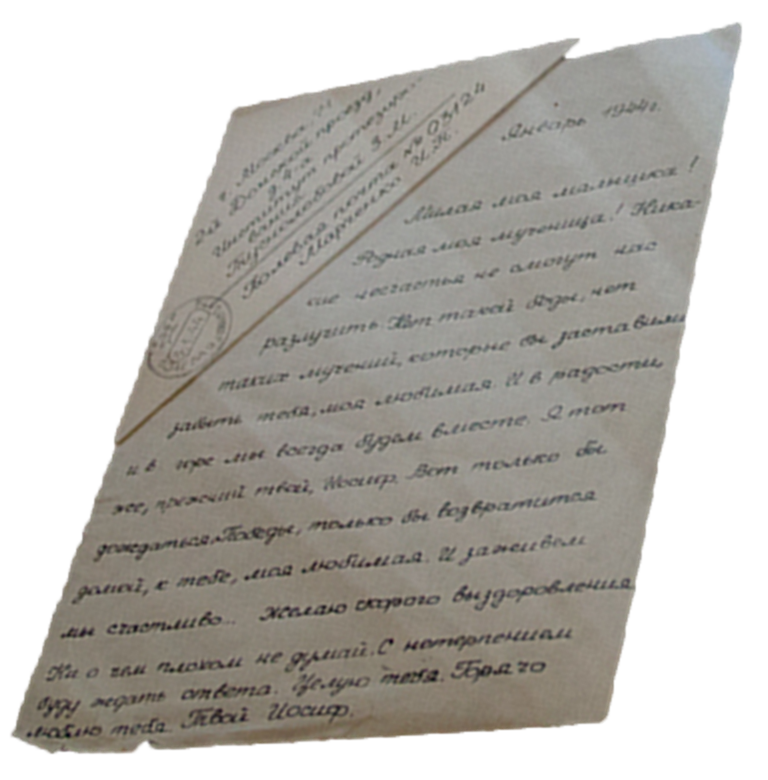 г. Москва-71
2й Донской проезд,
д. 4-а
Институт протезиро-
вания
Туснолобовой З.М.
Полевая почта № 03124
Марченко И.П.
Январь 1944г.
Милая моя малышка!
Родная моя мученица! Ника-
кие несчастья не смогут нас
разлучить. Нет такой беды, нет
таких мучений, которые бы заставили
забыть тебя, моя любимая. И в радости,
и в горе мы всегда будем вместе. Я тот
же, прежний твой, Иосиф. Вот только бы
дождаться Победы, только бы возвратится
домой, к тебе, моя любимая. И заживём
мы счастливо... Желаю скорого выздоровления
Ни о чем плохом не думай. С нетерпением
буду ждать ответа. Целую тебя. Горячо
люблю тебя. Твой Иосиф.